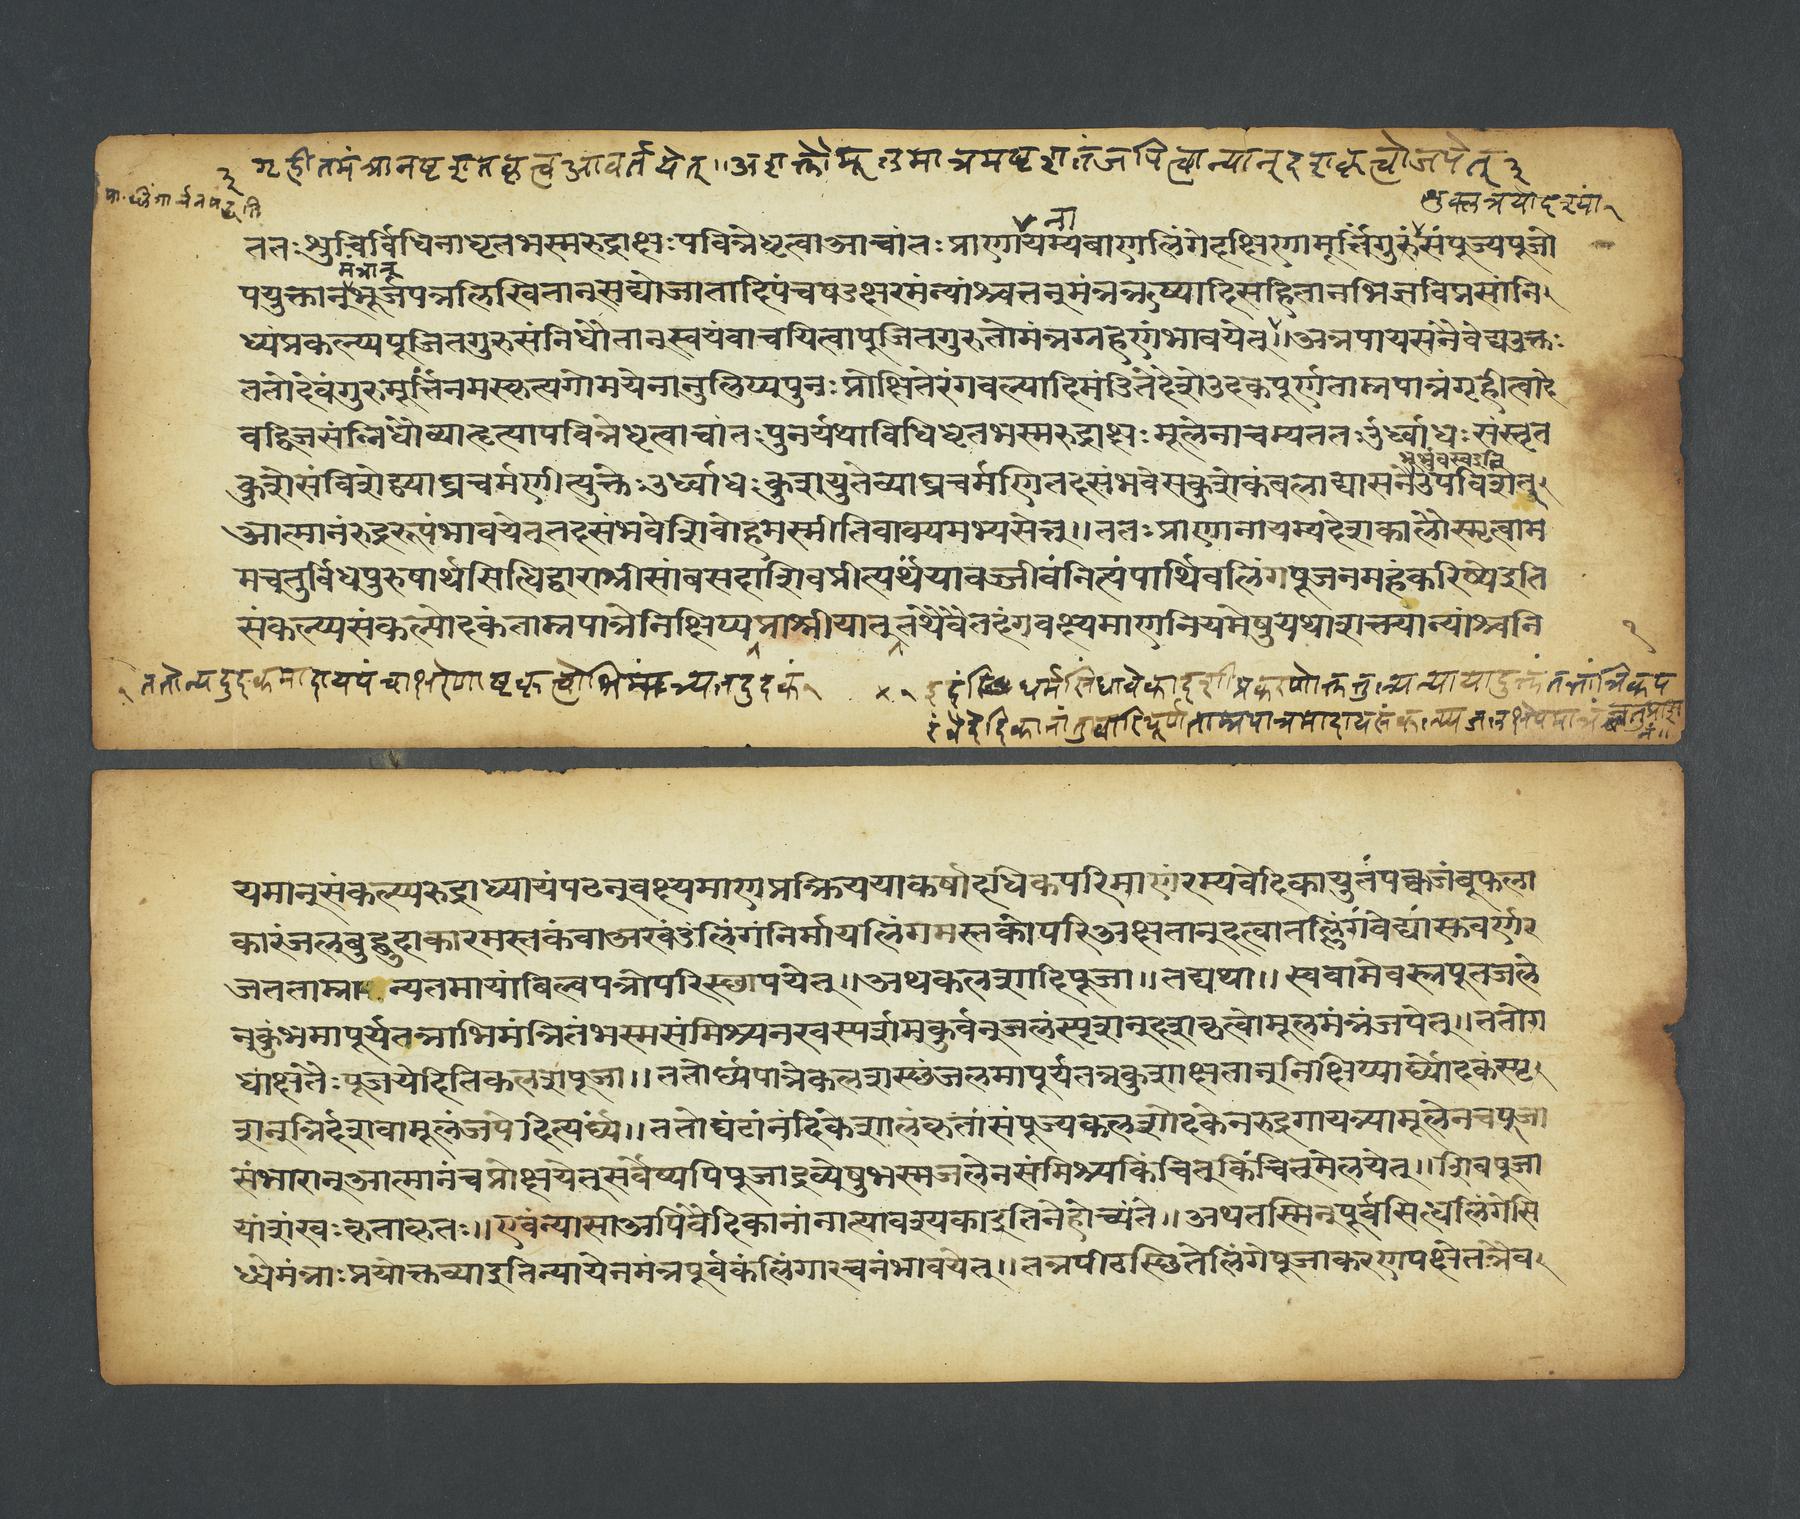 गृहीतमंत्रानष्टशतकृत्व आवर्तयेत्॥ अशक्तौमूलमात्रमष्टशतंजपित्वान्यान् दशकृत्वोजपेत् ३
पा. र्थिंगार्चनपद्धति
शुक्लत्रयोदश्यां
ना
ततःशुचिर्विधिनाधृतभस्मरुद्राक्षःपवित्रेधृत्वाआचांतःप्राणायम्यबाणलिंगेदक्षिणामूर्त्तिंगुरुंसंपूज्यपूजो
मंत्रान्
पयुक्तान्भूर्जपत्रलिखितान्सद्योजातादिपंचषडक्षरमंत्र्यांश्चतत्तन्मंत्रऋष्यादिसहितानभिजविप्रसांनि
ध्यंप्रकल्प्यपूजितगुरुसंनिधौतान्स्वयंवाचयित्वापूजितगुरुतोमंत्रग्रहणंभावयेत्॥अत्रपायसंनैवेद्यउक्तः
ततोदेवंगुरुमूर्त्तिंनमस्कृत्यगोमयेनानुलिप्यपुनःप्रोक्षितेरंगवल्यादिमंडितेदेशेउदकपूर्णताम्रपात्रंगृहीत्वादे
वद्विजसंन्निधौव्याहृत्यापवित्रेधृत्वाचांतःपुनर्यथाविधिधृतभस्मरुद्राक्षःमूलेनाचम्यततःउर्ध्वाधःसंस्तृत
भूर्भुवस्वइति
कुशेसंविशेद्व्याघ्रचर्मणीत्युक्तेःउर्ध्वाधःकुशयुतेव्याघ्रचर्मणितदसंभवेसकुशेकंबलाद्यासनेउपविशेत्
आत्मानंरुद्ररूपंभावयेत्तदसंभवेशिवोहमस्मीतिवाक्यमभ्यसेत्॥ततःप्राणानायम्यदेशकालौस्मृत्वामे
मचतुर्विधपुरुषार्थसिद्धिद्वाराश्रीसांबसदाशिवप्रीत्यर्थंयावज्जीवंनित्यंपार्थिवलिंगपूजनमहंकरिष्येइति
संकल्प्यसंकल्पोदकंताम्रपात्रेनिक्षिप्यप्राश्नीयात्तथैवैतदंगवक्ष्यमाणनियमेषुयथाशक्त्यान्यांश्चनि
ततोन्यदुदकमादायपंचाक्षरेणाष्टकृत्वोभिमंत्र्यतदुदकं
इदं धर्मसिंधावेकादशीप्रकरणोक्त
यमान्संकल्प्यरुद्राध्यायंपठन्वक्ष्यमाणप्रक्रिययाकर्षादधिकपरिमाणंरम्यवेदिकायुतंपक्वजंबूफला
कारंजलबुद्बुदाकारमस्तकंवाअखंडंलिंगंनिर्मायलिंगमस्तकोपरिअक्षतान्दत्वातल्लिंगंवेद्यांस्तवर्णर
जतताम्रा न्यतमायांबिल्वपत्रोपरिस्थापयेत्॥अथकलशादिपूजा॥तद्यथा॥स्ववामेवस्त्रपूतजले
नकुंभमापूर्यतत्राभिमंत्रितंभस्मसंमिश्र्यनखस्पर्शमकुर्वन्जलंस्पृशन्दशकृत्वोमूलमंत्रंजपेत्॥ततोग
धाक्षतैःपूजयेदितिकलशपूजा॥ततोर्घ्यपात्रेकलशस्थंजलमापूर्यतत्रकुशाक्षतान्निक्षिप्यार्घ्योदकंस्पृ
शन्त्रिर्दशवामूलंजपेदित्यर्घ्यं॥ततोघंटांनंदिकेशालंकृतांसंपूज्यकलशोदकेनरुद्रगायत्र्यामूलेनचपूजा
संभारान्आत्मानंचप्रोक्षयेत्सर्वेष्यपिपूजाद्रव्येषुभस्मजलेनसंमिश्र्यकिंचित्किंचित्मेलयेत्॥शिवपूजा
यांशंखःकृताकृतः॥एवंन्यासाअपिवैदिकानांनात्यावश्यकाइतिनेहोच्यंते॥अथतस्मिन्पूर्वसिद्धलिंगेसि
ध्धेमंत्राःप्रयोक्तव्याइतिन्यायेनमंत्रपूर्वकंलिंगारचनंभावयेत्॥तत्रपीठस्थितेलिंगेपूजाकरणपक्षेतत्रैव